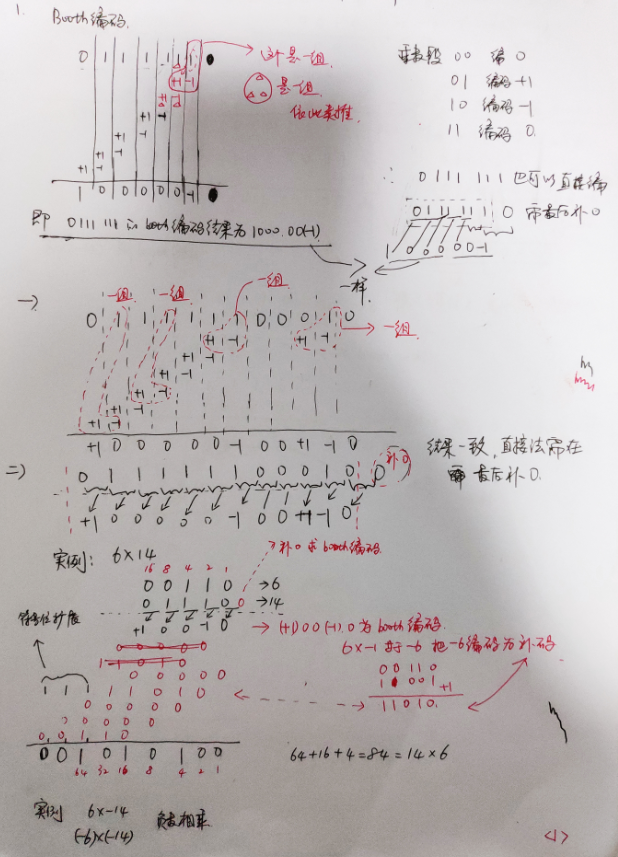 1.
Booth编码.
0 1 1 1 1 1 1 ●
+1 -1
+1 -1
+1 -1
+1 -1
+1 -1
+1 -1
1 0 0 0 0 0 -1 ●
这是一组
是一组
依此类推
00 编 0
01 编码 +1
10 编码 -1
11 编码 0.
∴ 0111 111 也可以直接编
0111111 0 需最后补0
1 0 0 0 0 0 -1
即 0111 111 的 booth编码结果为 1000.00(-1)
一样.
一)
一组 一组 一组
0 1 1 1 1 1 1 0 0 0 1 0
+1 -1 +1 -1
→一组
+1 -1
+1 -1
+1 -1
+1 -1
+1 -1
+1 0 0 0 0 0 -1 0 0 +1 -1 0
二)
0 1 1 1 1 1 1 0 0 0 1 0 0 补0
+1 0 0 0 0 0 -1 0 0 +1 -1 0
结果一致,直接法需在
最后补0.
实例: 6×14
→补0求booth编码
16 8 4 2 1
0 0 1 1 0 →6
0 1 1 1 0 0 →14
+1 0 0 -1 0
→ (+1)00(-1).0为booth编码.
6×-1 等于-6 把-6编码为补码
符号位扩展
0 0 0 0 0
1 1 1 1 1 0 1 0
0 0 0 0 0
0 0 0 0 0
0 0 1 1 0
0 0 1 0 1 0 1 0 0
64 32 16 8 4 2 1
0 0 1 1 0
1 1 0 0 1 +1
1 1 0 1 0.
64+16+4=84=14×6
实例 6×-14
(-6)×(-14) 负数相乘
<1>